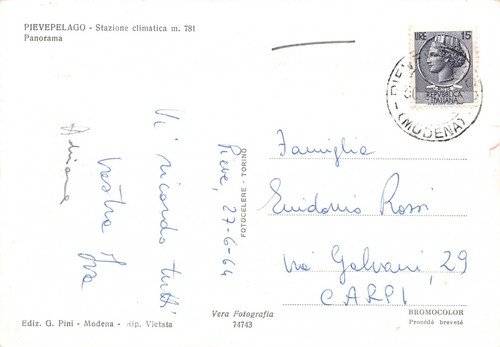 PIEVEPELAGO - Stazione climatica m. 781
Panorama
LIRE 15
REPUBBLICA
ITALIANA
PIEVE
(MODENA)
Pieve, 27-6-64
Vi ricordo tutti
vostra
Adriana
FOTOCELERE - TORINO
Famiglia
Rossi
via Galvani, 29
CARPI
Ediz. G. Pini - Modena - Rip. Vietata
Vera Fotografia
74743
BROMOCOLOR
Procédé breveté